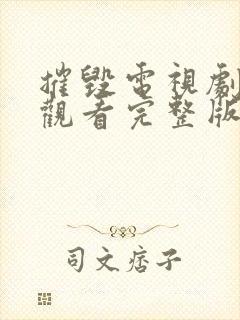 摧毀電視劇
觀看完整版
司文痞子